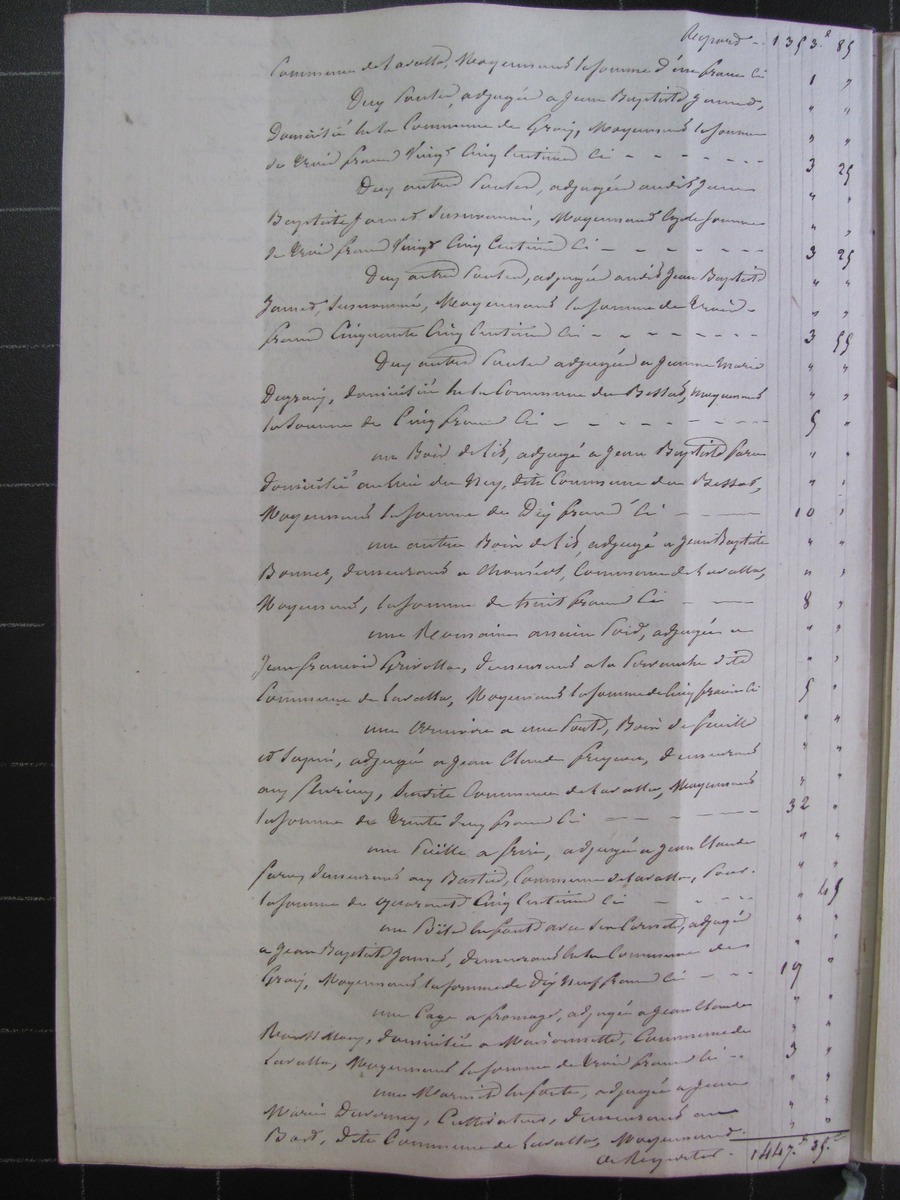 Report - 1353.f 85
Commune de Lavalla, Moyennant la somme d'un franc Ci 1 "
Deux adjugée a Jean Baptiste James,
Domicilié en la Commune de Graix, Moyennant la somme
de trois francs Vingt Cinq Centimes Ci - - - - - - 3 25
Deux autres adjugée audit Jean
Baptiste James susnommé, Moyennant la somme
de trois francs Vingt Cinq Centimes Ci - - - - - - 3 25
Deux autres adjugée audit Jean Baptiste
James, susnommé, Moyennant la somme de trois
francs Cinquante Cinq Centimes Ci - - - - - - 3 55
Deux autres adjugée a Jeanne Marie
domiciliée en la Commune du Bessat, moyennant
la somme de Cinq francs Ci - - - - - - - - 5 "
un Bois de lit, adjugé a Jean Baptiste
domicilié au lieu du dite Commune du Bessat,
Moyennant la somme de Dix francs Ci - - - - 10 "
un autre Bois de lit, adjugé a Jean Baptiste
Bonnet, demeurant a Commune de Lavalla,
Moyennant, la somme de huit francs Ci - - - 8 "
une Romaine ancien Poid, adjugée a
Jean francois Grivolla, demeurant a la dite
Commune de Lavalla, Moyennant la somme de Cinq francs Ci 5 "
une a une Porte, Bois de feuille
et Sapin, adjugée a Jean Claude demeurant
aux susdite Commune de Lavalla, Moyennant
la somme de trente deux francs Ci - - - - - 32 "
une Poële a frire, adjugée a Jean Claude
demeurant aux Commune de Lavalla, Pour
la somme de quarante Cinq Centimes Ci - - - - " 45
une en font avec son adjugé
a Jean Baptiste James, demeurant en la Commune de
Graix, Moyennant la somme de Dix Neuf francs Ci - - - 19 "
une Cage a fromage, adjugée a Jean Claude
domicilié a Maisonnette, Commune de
Lavalla, Moyennant la somme de trois francs Ci - - 3 "
une Marmite en fonte, adjugée a Jean
Marie Duvernay, Cultivateur, demeurant au
dite Commune de Lavalla, Moyennant
a Reporter - 1447.f 35.c